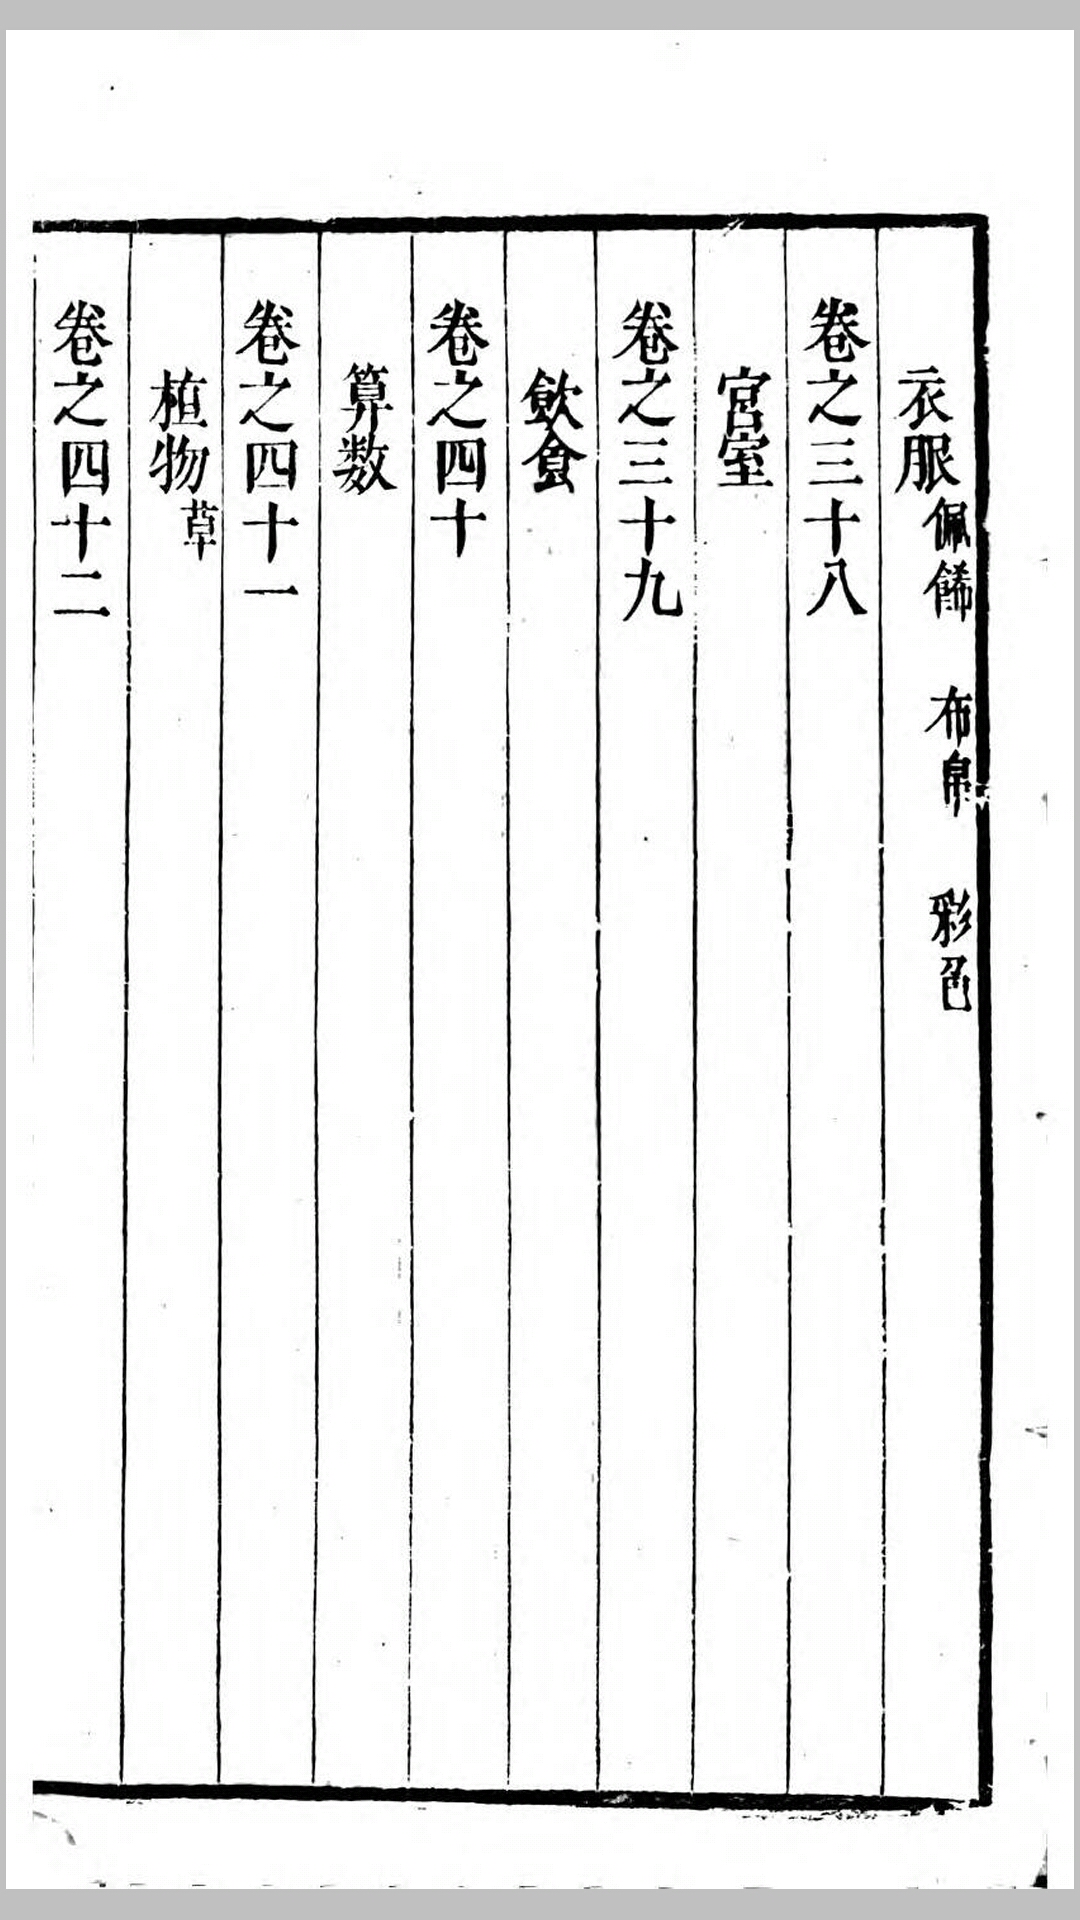 衣服佩餙 布帛 彩色
卷之三十八
宮室
卷之三十九
飲食
卷之四十
算数
卷之四十一
植物草
卷之四十二